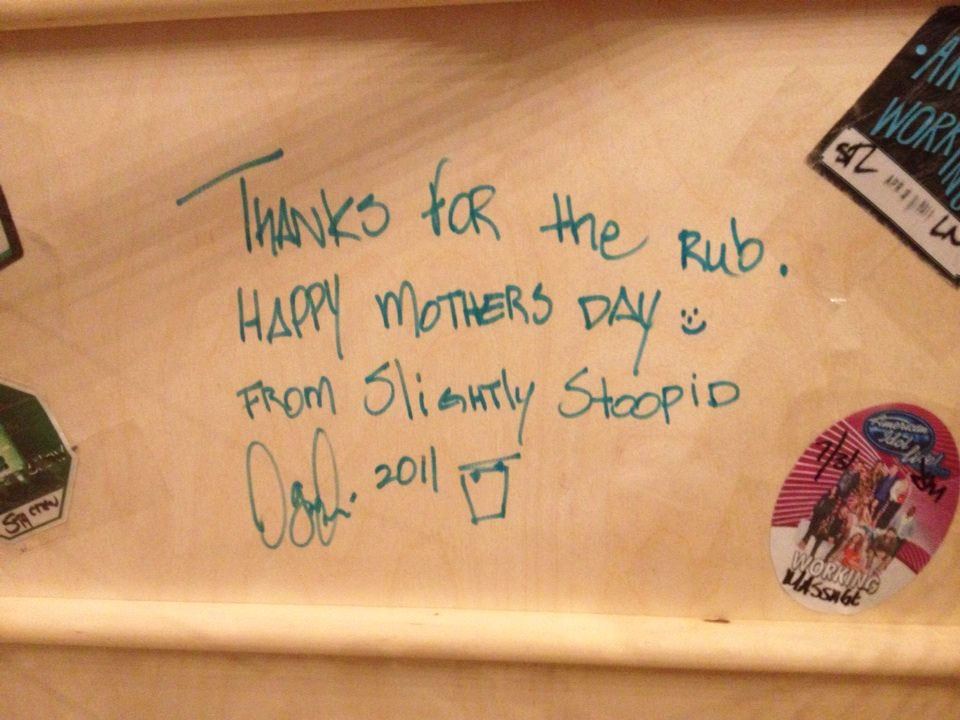 THANKS FOR the Rub.
HAPPY MOTHERS DAY
FROM SliGHTly StoopiD
2011
AR
WORKING
STL
APR
LN
American
Idol Live!
7/21
WORKING
MASSAGE